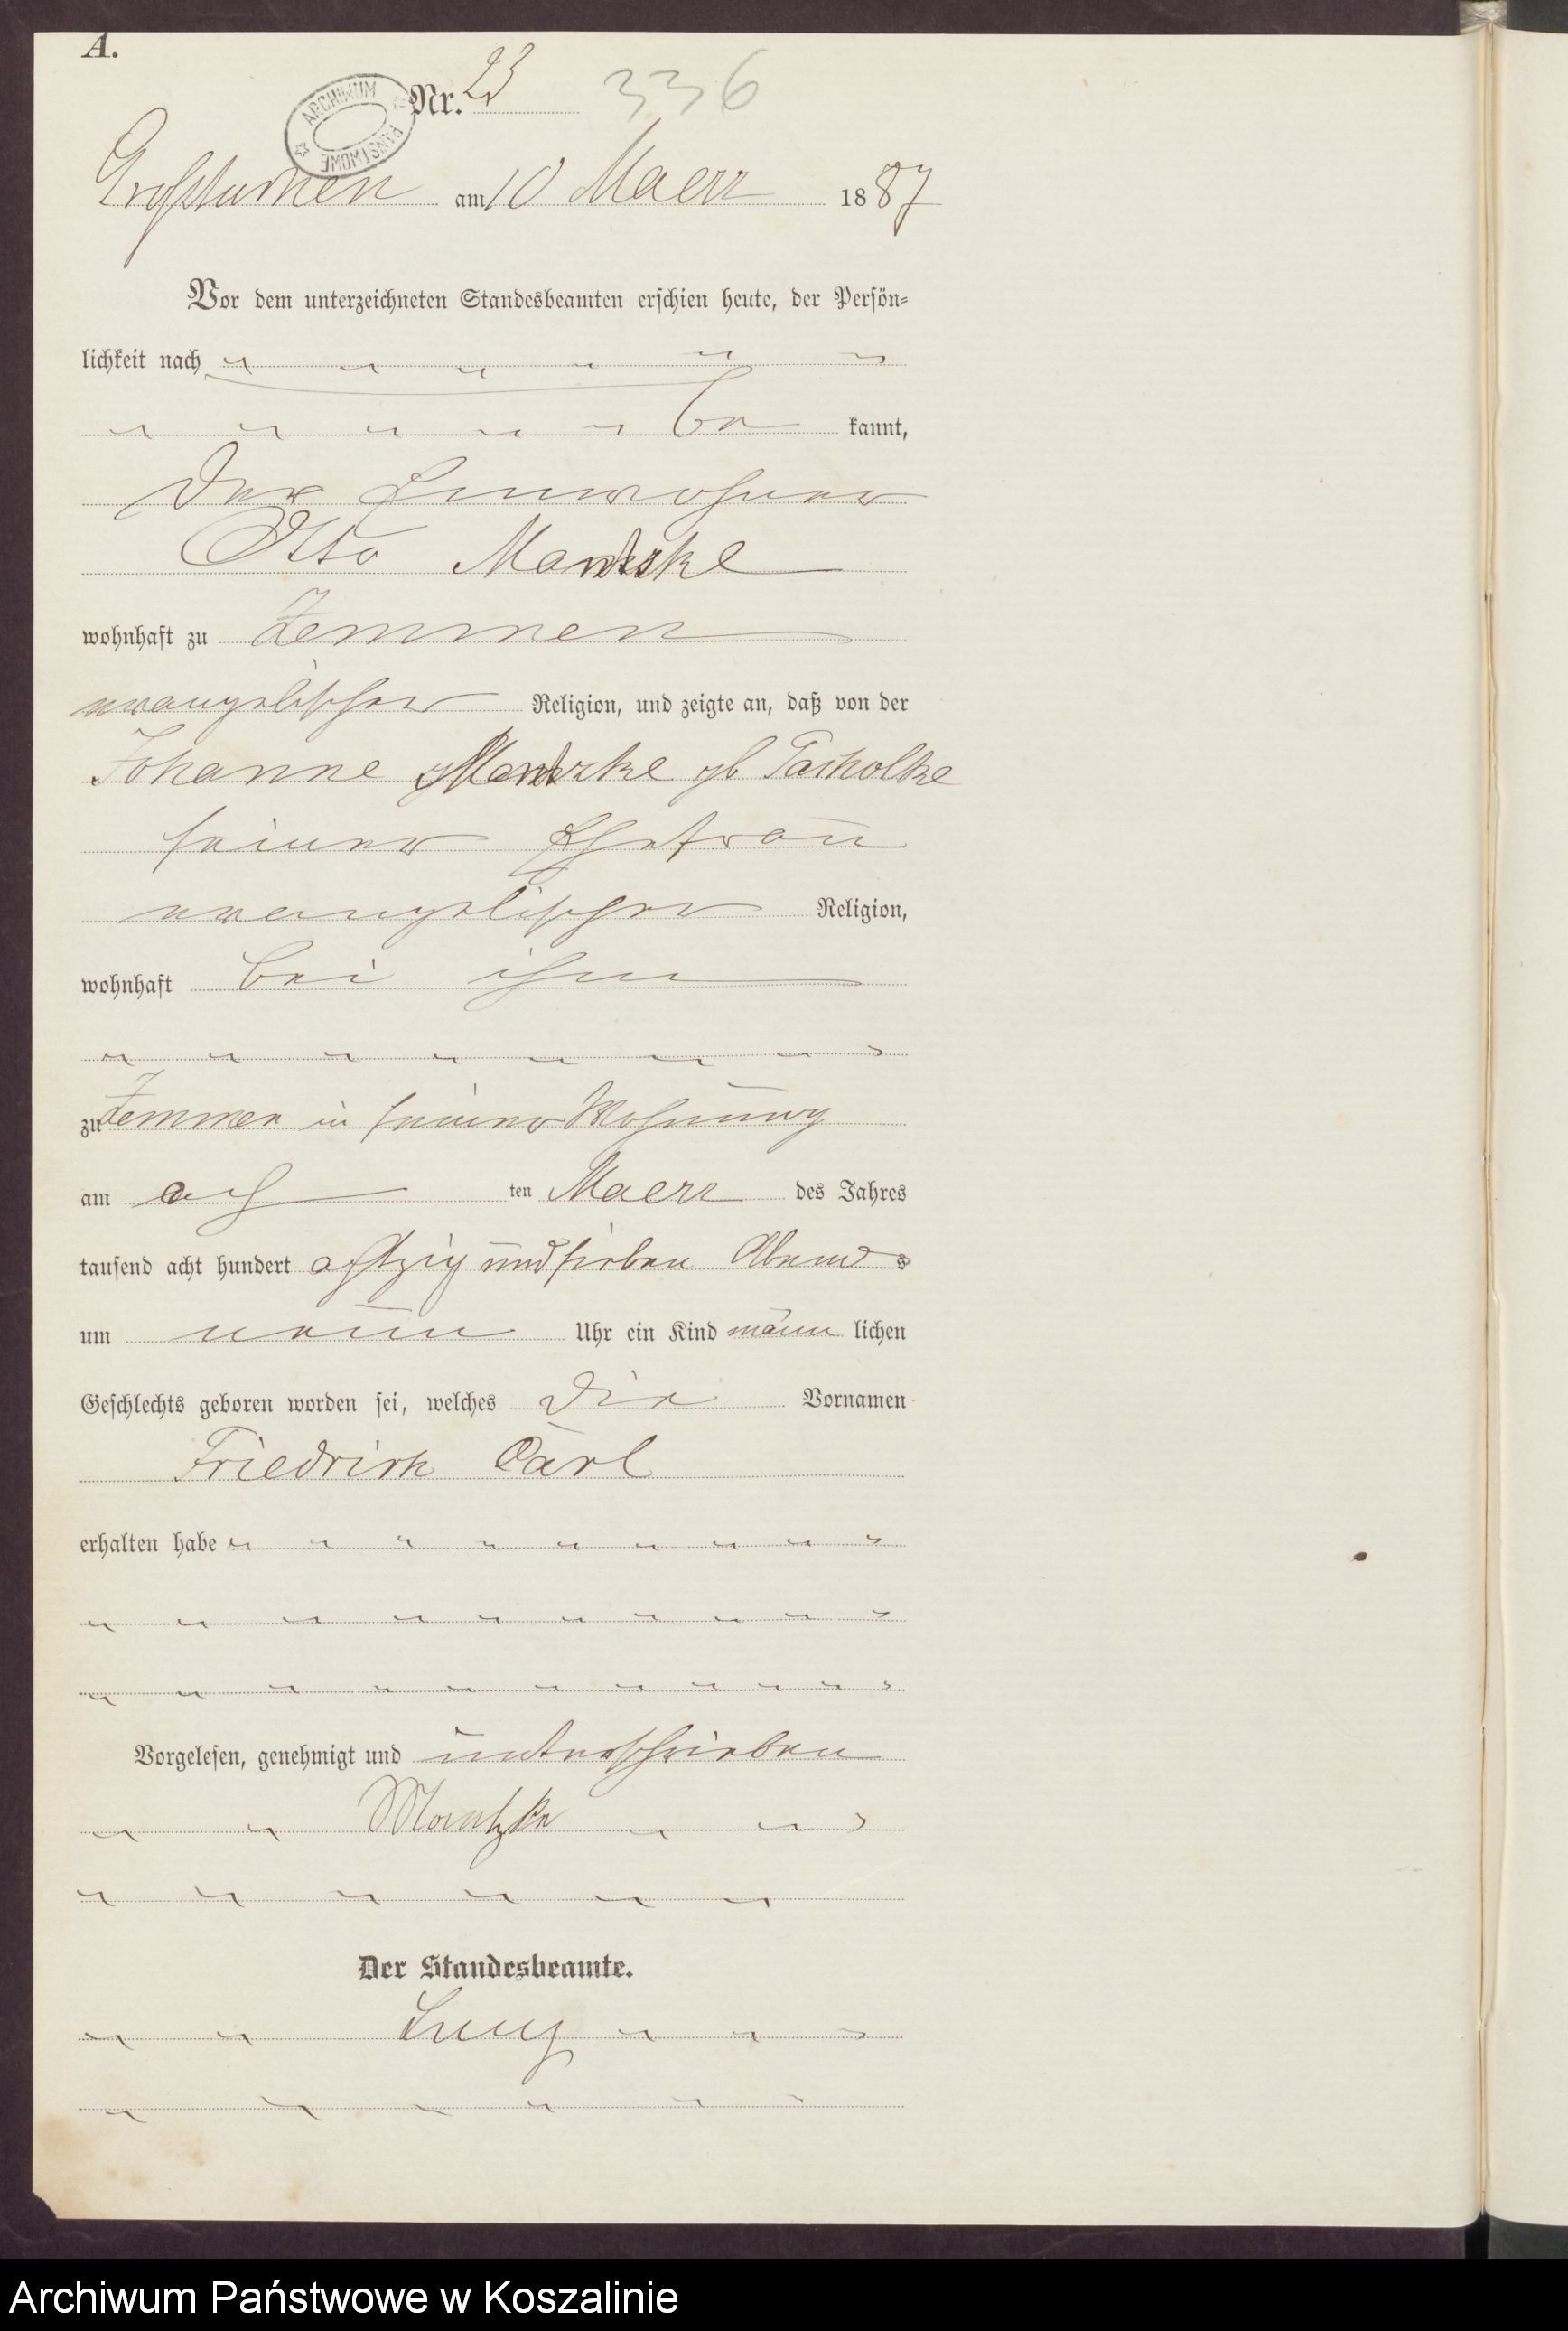 A.
Nr. 23 336
ARCHIWUM PAŃSTWOWE
Großtuchen am 10 Maerz 1887
Vor dem unterzeichneten Standesbeamten erschien heute, der Persön-
lichkeit nach
be kannt,
der Einwohner
Otto
wohnhaft zu Zemmen
evangelischer Religion, und zeigte an, daß von der
Johanne gb
seiner Ehefrau
evangelischer Religion,
wohnhaft bei ihm
zu Zemmen in seiner Wohnung
am ach ten Maerz des Jahres
tausend acht hundert achtzig und sieben Abends
um neun Uhr ein Kind männ lichen
Geschlechts geboren worden sei, welches die Vornamen
Friedrich Carl
erhalten habe
Vorgelesen, genehmigt und unterschrieben
Der Standesbeamte.
Archiwum Państwowe w Koszalinie